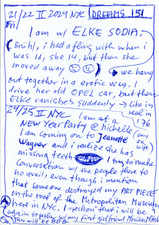 21/22 II 2024 NYC DREAMS 151
Fri
I am w/ ELKE SODIA,
(Brühl, I had a fling with when I
was 16, she 14, but then she
moved away) we hang
out together in a erotic way. I
drive her old OPEL car, but then
ELKE vanishes suddenly →
24/25 II NYC I am at a
New Year Party @ Michelle,
I am coming in to Jeanette
Wagner and I realize she has
missing teeth I try to make
conversation w/ the people have to
no avail, even though I mention
that someone destroyed my ART PIECE
on the roof of the Metropolitan Museum
here in NYC. I mention that I will be
again w/ my first girlfriend Monika